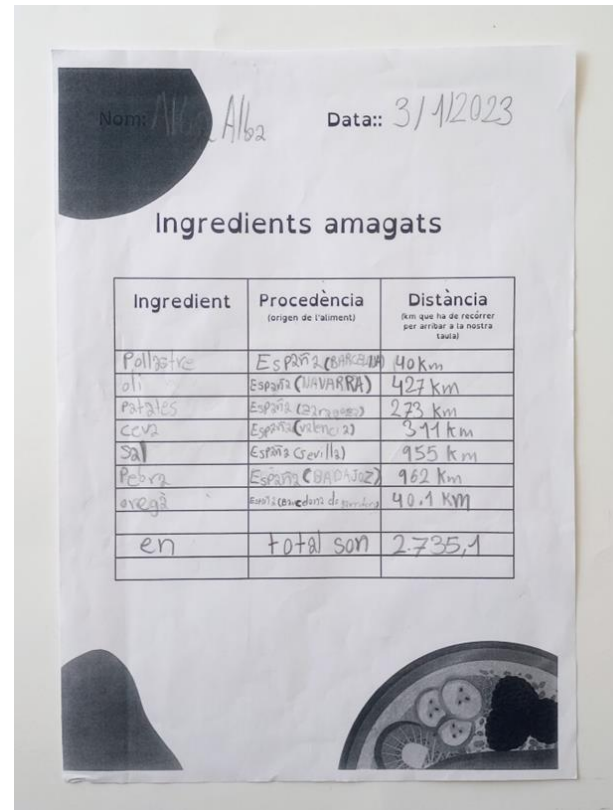 Nom: Alba Alba Data:: 3/1/2023
Ingredients amagats
Ingredient Procedència Distància
(origen de l'aliment) (km que ha de recórrer
per arribar a la nostra
taula)
Pollastre España (BARCELONA) 40 Km
oli España (NAVARRA) 427 km
Patates España (zaragoza) 273 km
ceva España (valencia) 311 km
Sal España (sevilla) 955 km
Pebra España (BADAJOZ) 962 Km
oregà España 40.1 KM
en total son 2.735,1